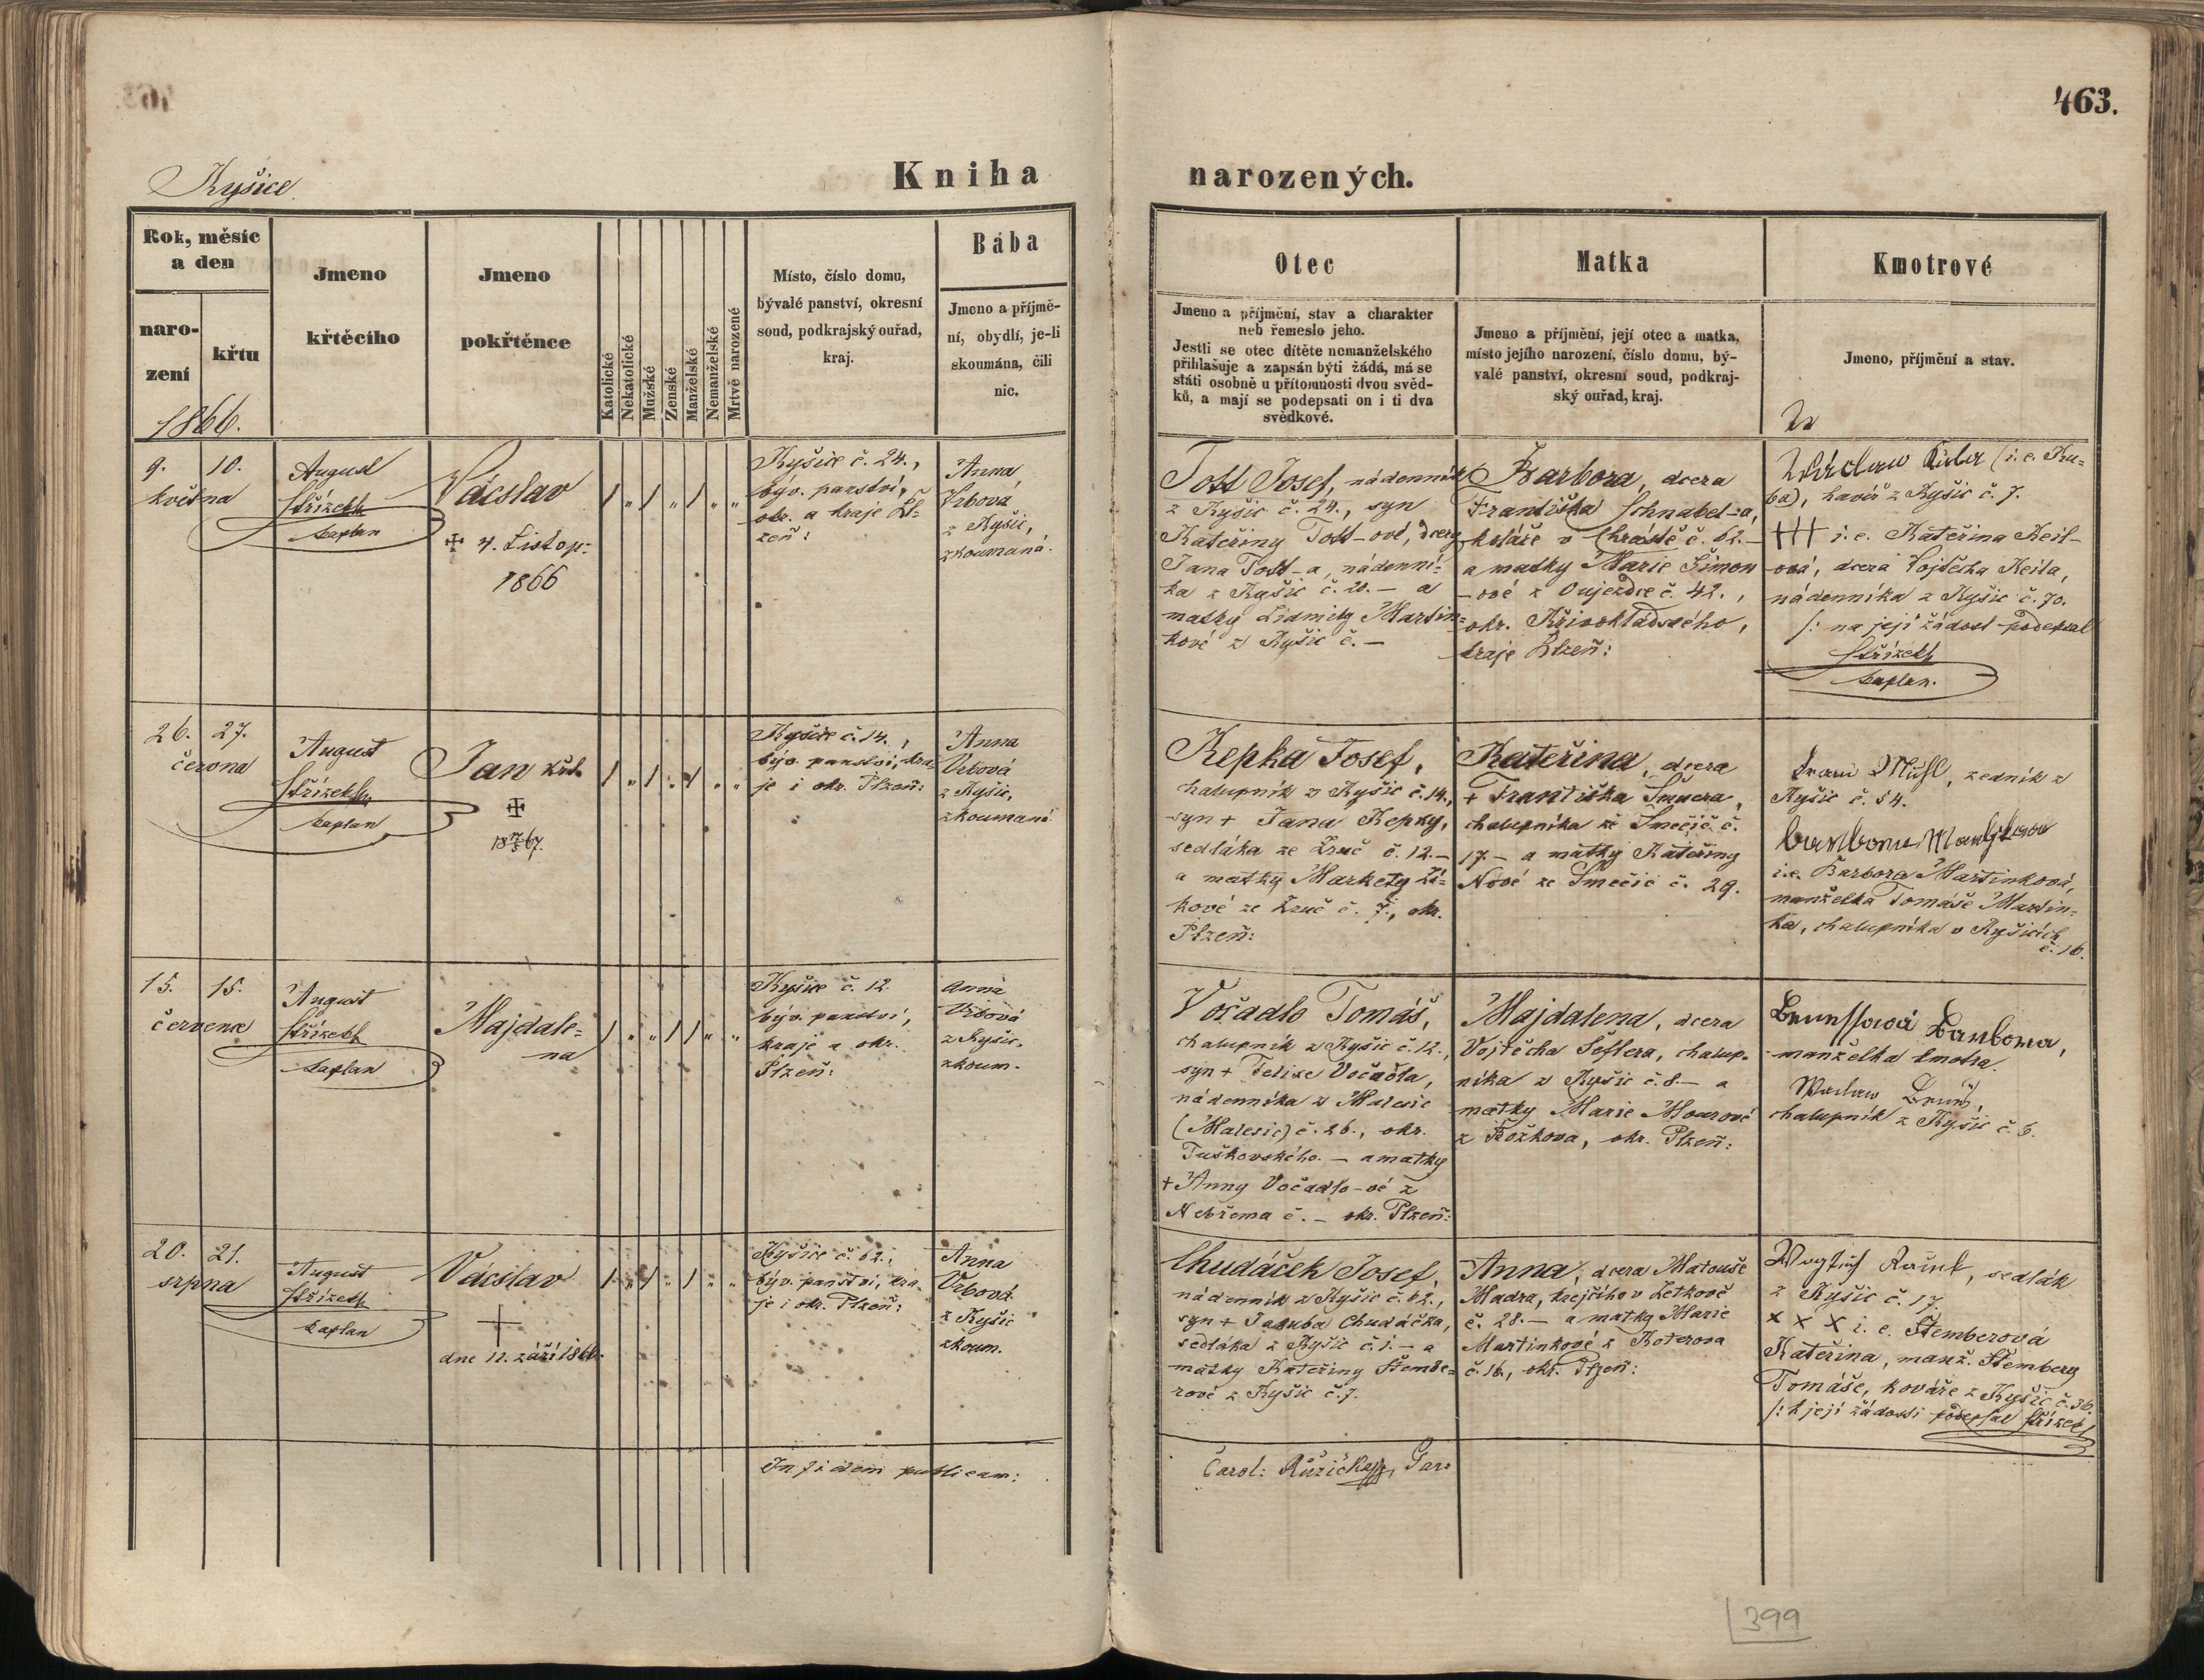 463.
Kyšice
Kniha narozených.
Rok, měsíc
a den
naro-
zení
křtu
1866.
Jmeno
křtěcího
Jmeno
pokřtěnce
Katolické
Nekatolické
Mužské
Ženské
Manželské
Nemanželské
Mrtvě narozené
Místo, číslo domu,
bývalé panství, okresní
soud, podkrajský ouřad,
kraj.
Bába
Jmeno a příjmě-
ní, obydlí, je-li
skoumána, čili
nic.
Otec
Jmeno a příjmění, stav a charakter
neb řemeslo jeho.
Jestli se otec dítěte nemanželského
přihlašuje a zapsán býti žádá, má se
státi osobně u přítomnosti dvou svěd-
ků, a mají se podepsati on i ti dva
svědkové.
Matka
Jmeno a příjmění, její otec a matka,
místo jejího narození, číslo domu, bý-
valé panství, okresní soud, podkraj-
ský ouřad, kraj.
Kmotrové
Jmeno, příjmění a stav.
9. 10.
května
August
Střízek
kaplan
Václav
✠ 4. Listop:
1866
/ " / " / " "
Kyšice č. 24.,
býv. panství,
okr. a kraje Pl-
zeň:
Anna
Vrbová
z Kyšic,
zkoumaná.
Tott Josef, nádenník
z Kyšic č. 24., syn
Kateřiny Tott-ové, dcery
Jana Tott-a, nádenní-
ka z Kyšic č. 20. – a
matky Lidmily Martin-
kové z Kyšic č. –
Barbora, dcera
Františka Schnabel-a,
koláře v Chrástě č. 62. –
a matky Marie Šimon
-ové z Oujezdce č. 42.,
okr. Křivokládského,
kraje Plzeň:
Wáclaw Kuba (i. e. Ku-
ba), havíř z Kyšic č. 7.
+++ i. e. Kateřina Keil-
ová, dcera Vojtěcha Keila,
nádenníka z Kyšic č. 70.
/: na její žádost podepsal
Střízek
kaplan.
26. 27.
června
August
Střízek
kaplan
Jan křt.
✠
18 5 67.
/ " / " / " "
Kyšice č. 14.,
býv. panství, kra-
je i okr. Plzeň:
Anna
Vrbová
z Kyšic,
zkoumaná
Kepka Josef,
chalupník z Kyšic č. 14.,
syn + Jana Kepky,
sedláka ze Zruč č. 12. –
a matky Markety Zí-
kové ze Zruč č. 7., okr.
Plzeň:
Kateřina, dcera
+ Františka
chalupníka ze Smečic č.
17. – a matky Kateřiny
Nové ze Smečic č. 29.
zedník z
Kyšic č. 54.
i. e. Barbora Martinková,
manželka Tomáše Martin-
ka, chalupníka v Kyšicích
č. 16.
15. 15.
července
August
Střízek
kaplan
Majdale-
na
/ " " / / " "
Kyšice č. 12.
býv. panství,
kraje a okr.
Plzeň:
Anna
Vrbová
z Kyšic,
zkoum.
Vočadlo Tomáš,
chalupník z Kyšic č. 12.,
syn + Felixe Vočadla,
nádenníka z Malesic
(Malesic) č. 26., okr.
Tuškovského. – a matky
+ Anny Vočadlo-vé z
Nebřema č. – okr. Plzeň:
Majdalena, dcera
Vojtěcha Šeflera, chalup-
níka z Kyšic č. 8. – a
matky Marie Mourové
z Božkova, okr. Plzeň:
Barbora,
manželka kmotra.
Waclaw
chalupník z Kyšic č. 6.
20. 21.
srpna
August
Střízek
kaplan
Václav
+
dne 12. září 1866.
/ " / " / " "
Kyšice č. 62.,
býv. panství, kra-
je i okr. Plzeň:
Anna
Vrbová
z Kyšic
zkoum.
Chudáček Josef,
nádenník z Kyšic č. 62.,
syn + Jakuba Chudáčka,
sedláka z Kyšic č. 1. – a
matky Kateřiny Štembe-
rové z Kyšic č. 7.
Anna, dcera Matouše
Madra, krejčího v Letkově
č. 28. – a matky Marie
Martinkové z Koterova
č. 16., okr. Plzeň:
sedlák
z Kyšic č. 17.
x x x i. e. Štemberová
Kateřina, manž. Štembery
Tomáše, kováře z Kyšic č. 36.
/: k její žádosti podepsal Střízek
In fidem publicam:
Carol: Růžička, Par:
399